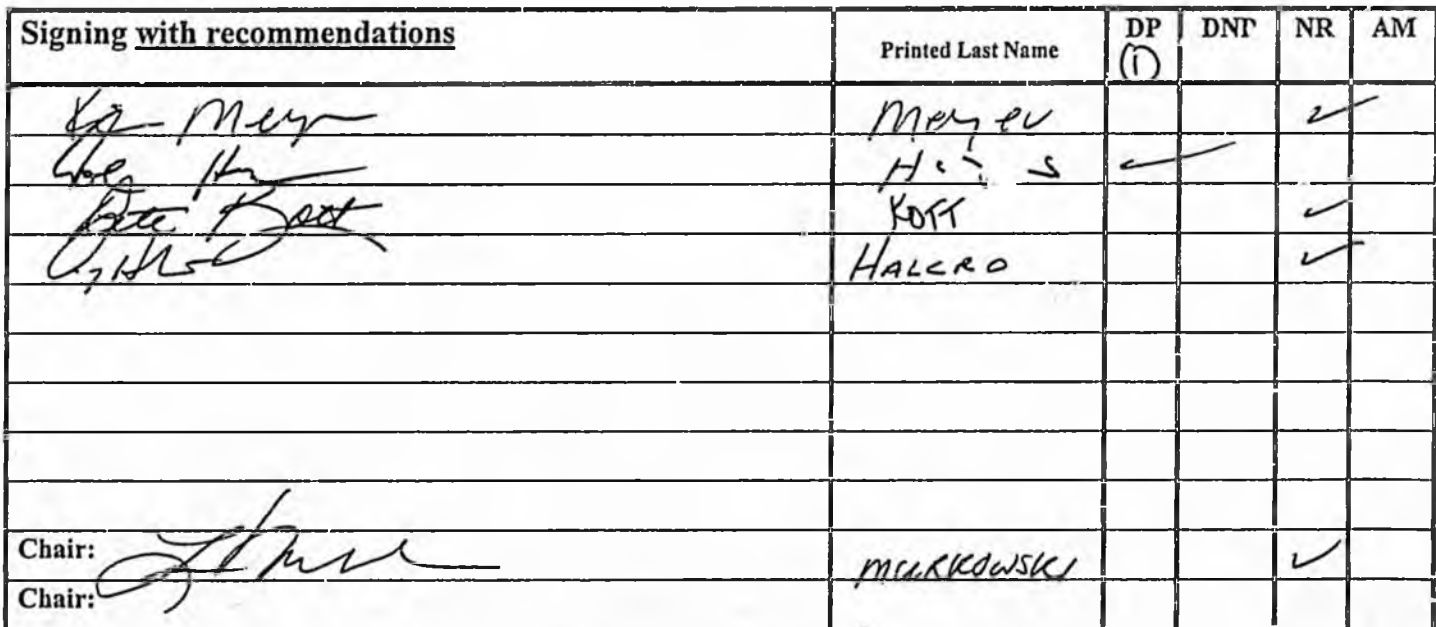 Signing with recommendations Printed Last Name DP DNP NR AM
(1)
Meyer ✓
✓
Pete Kott KOTT ✓
HALCRO ✓
Chair: MURKOWSKI ✓
Chair: